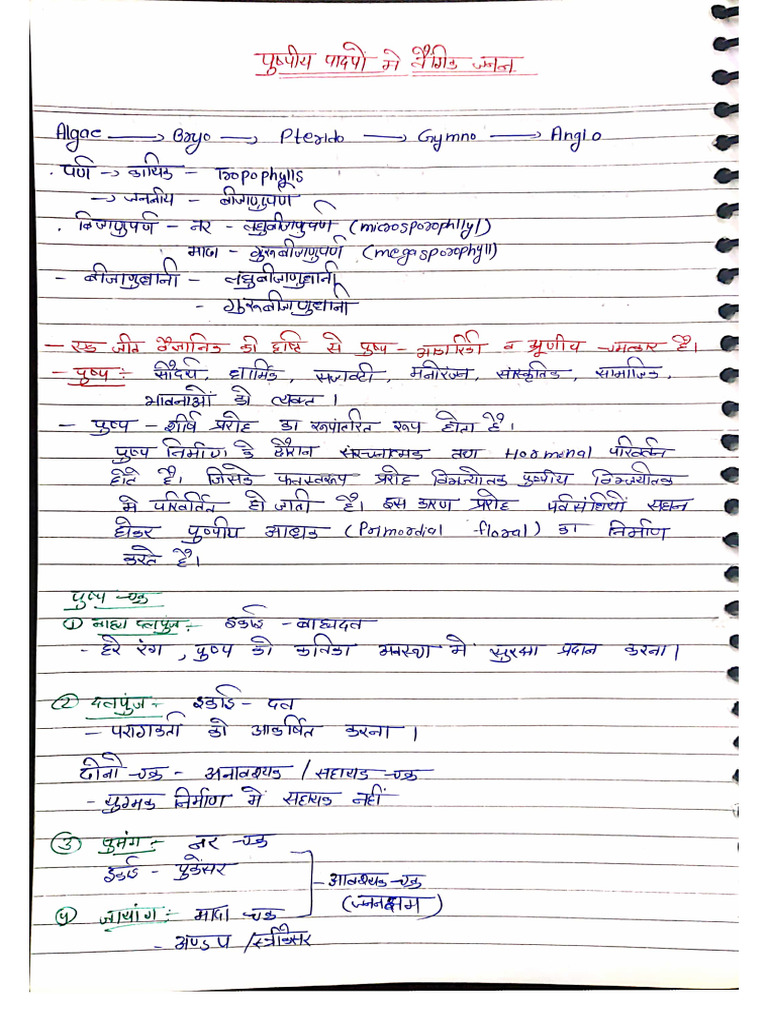 पुष्पीय पादपों मे लैंगिक जनन
Algae → Bryo → Pterido → Gymno → Angio
. पर्ण → कायिक - Tropophylls
→ जननीय - बीजाणुपर्ण
. बिजाणुपर्ण - नर - लघुबीजाणुपर्ण (microsporophllyl)
मादा - गुरुबीजाणुपर्ण (megasporophyll)
- बीजाणुधानी - लघुबीजाणुधानी
- गुरुबीजाणुधानी
- एक जीव वैज्ञानिक की दृष्टि से पुष्प - आकारिकी व भ्रूणीय चमत्कार है।
- पुष्प :- सौंदर्य, धार्मिक, सजावटी, मनोरंजन, सांस्कृतिक, सामाजिक,
भावनाओं को व्यक्त।
- पुष्प - शीर्ष प्ररोह का रूपांतरित रूप होता है।
पुष्प निर्माण के दौरान संरचनात्मक तथा Hormonal परिवर्तन
होते है। जिसके फलस्वरूप प्ररोह विभज्योतक पुष्पीय विभज्योतक
मे परिवर्तित हो जाती है। इस कारण प्ररोह पर्वसंधियों सघन
होकर पुष्पीय आद्यक (Primordial floral) का निर्माण
करते है।
पुष्प चक्र
① बाह्य दलपुंज :- इकाई - बाह्यदल
- हरे रंग, पुष्प को कलिका अवस्था मे सुरक्षा प्रदान करना।
② दलपुंज :- इकाई - दल
- परागकर्ता को आकर्षित करना।
दोनो चक्र - अनावश्यक / सहायक चक्र
- युग्मक निर्माण में सहायक नहीं
③ पुमंग :- नर चक्र
इकाई - पुकेंसर
- आवश्यक चक्र
(जननक्षम)
④ जायांग :- मादा चक्र
- अण्डप / स्त्रीकेसर